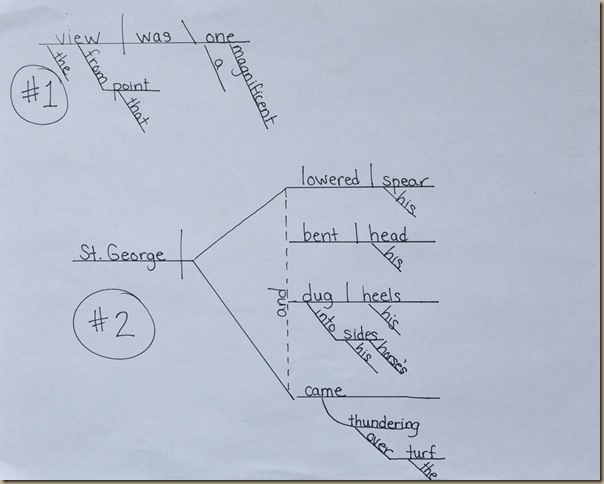 view was one
the from a magnificent
point
that
#1
lowered spear
his
bent head
his
St. George
and
dug heels
into his
sides
his horse's
#2
came
thundering
over turf
the